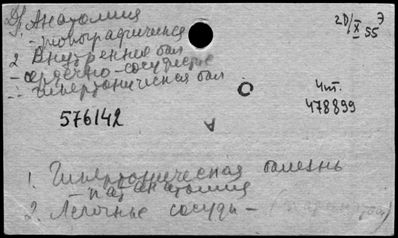 Анатомия
2D/X 55 Э
2 Внутренние бол
сердечно-сосудистые
Гипертоническая бол
Чт.
478899
576142
1. Гипертоническая болезнь
- пат анатомия
2. Легочные сосуды -